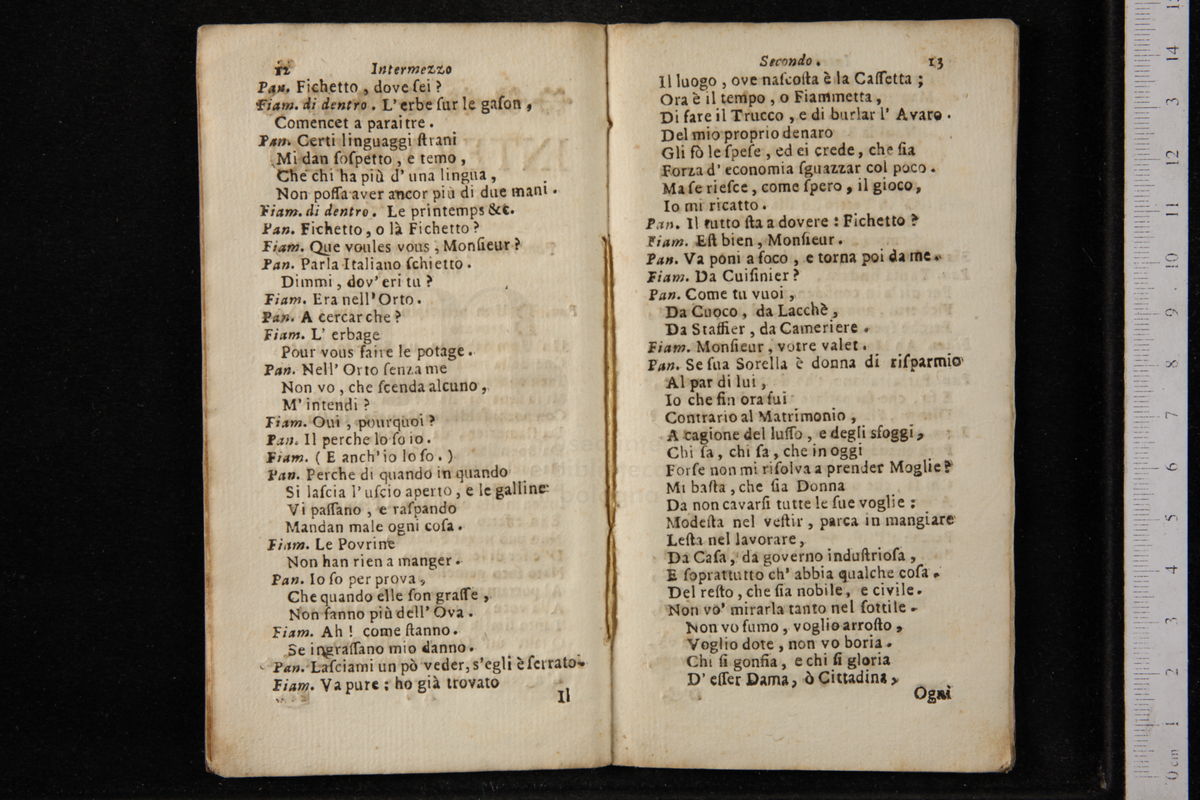 12 Intermezzo
Pan. Fichetto , dove ſei ?
Fiam. di dentro . L' erbe ſur le gaſon ,
Comencet a paraitre .
Pan. Certi linguaggi ſtrani
Mi dan ſoſpetto , e temo ,
Che chi ha più d' una lingua ,
Non poſſa aver ancor più di due mani .
Fiam. di dentro . Le printemps &c.
Pan. Fichetto , o là Fichetto ?
Fiam. Que voules vous , Monſieur ?
Pan. Parla Italiano ſchietto .
Dimmi , dov' eri tu ?
Fiam. Era nell' Orto .
Pan. A cercar che ?
Fiam. L' erbage
Pour vous faire le potage .
Pan. Nell' Orto ſenza me
Non vo , che ſcenda alcuno ,
M' intendi ?
Fiam. Oui , pourquoi ?
Pan. Il perche lo ſo io .
Fiam. ( E anch' io lo ſo . )
Pan. Perche di quando in quando
Si laſcia l' uſcio aperto , e le galline
Vi paſſano , e raſpando
Mandan male ogni coſa .
Fiam. Le Povrine
Non han rien a manger .
Pan. Io ſo per prova ,
Che quando elle ſon graſſe ,
Non fanno più dell' Ova .
Fiam. Ah ! come ſtanno .
Se ingraſſano mio danno .
Pan. Laſciami un pò veder, s'egli è ſerrato .
Fiam. Va pure ; ho già trovato
Il
Secondo . 13
Il luogo , ove naſcoſta è la Caſſetta ;
Ora è il tempo , o Fiammetta ,
Di fare il Trucco , e di burlar l' Avaro .
Del mio proprio denaro
Gli fò le ſpeſe , ed ei crede , che ſia
Forza d' economia ſguazzar col poco .
Ma ſe rieſce , come ſpero , il gioco ,
Io mi ricatto .
Pan. Il tutto ſta a dovere : Fichetto ?
Fiam. Eſt bien , Monſieur .
Pan. Va poni a foco , e torna poi da me .
Fiam. Da Cuiſinier ?
Pan. Come tu vuoi ,
Da Cuoco , da Lacchè ,
Da Staffier , da Cameriere .
Fiam. Monſieur , votre valet .
Pan. Se ſua Sorella è donna di riſparmio
Al par di lui ,
Io che fin ora fui
Contrario al Matrimonio ,
A cagione del luſſo , e degli sfoggi ,
Chi ſa , chi ſa , che in oggi
Forſe non mi riſolva a prender Moglie ?
Mi baſta , che ſia Donna
Da non cavarſi tutte le ſue voglie :
Modeſta nel veſtir , parca in mangiare
Leſta nel lavorare ,
Da Caſa , da governo induſtrioſa ,
E ſoprattutto ch' abbia qualche coſa .
Del reſto , che ſia nobile , e civile .
Non vo' mirarla tanto nel ſottile .
Non vo fumo , voglio arroſto ,
Voglio dote , non vo boria .
Chi ſi gonfia , e chi ſi gloria
D' eſſer Dama , ò Cittadina ,
Ogni